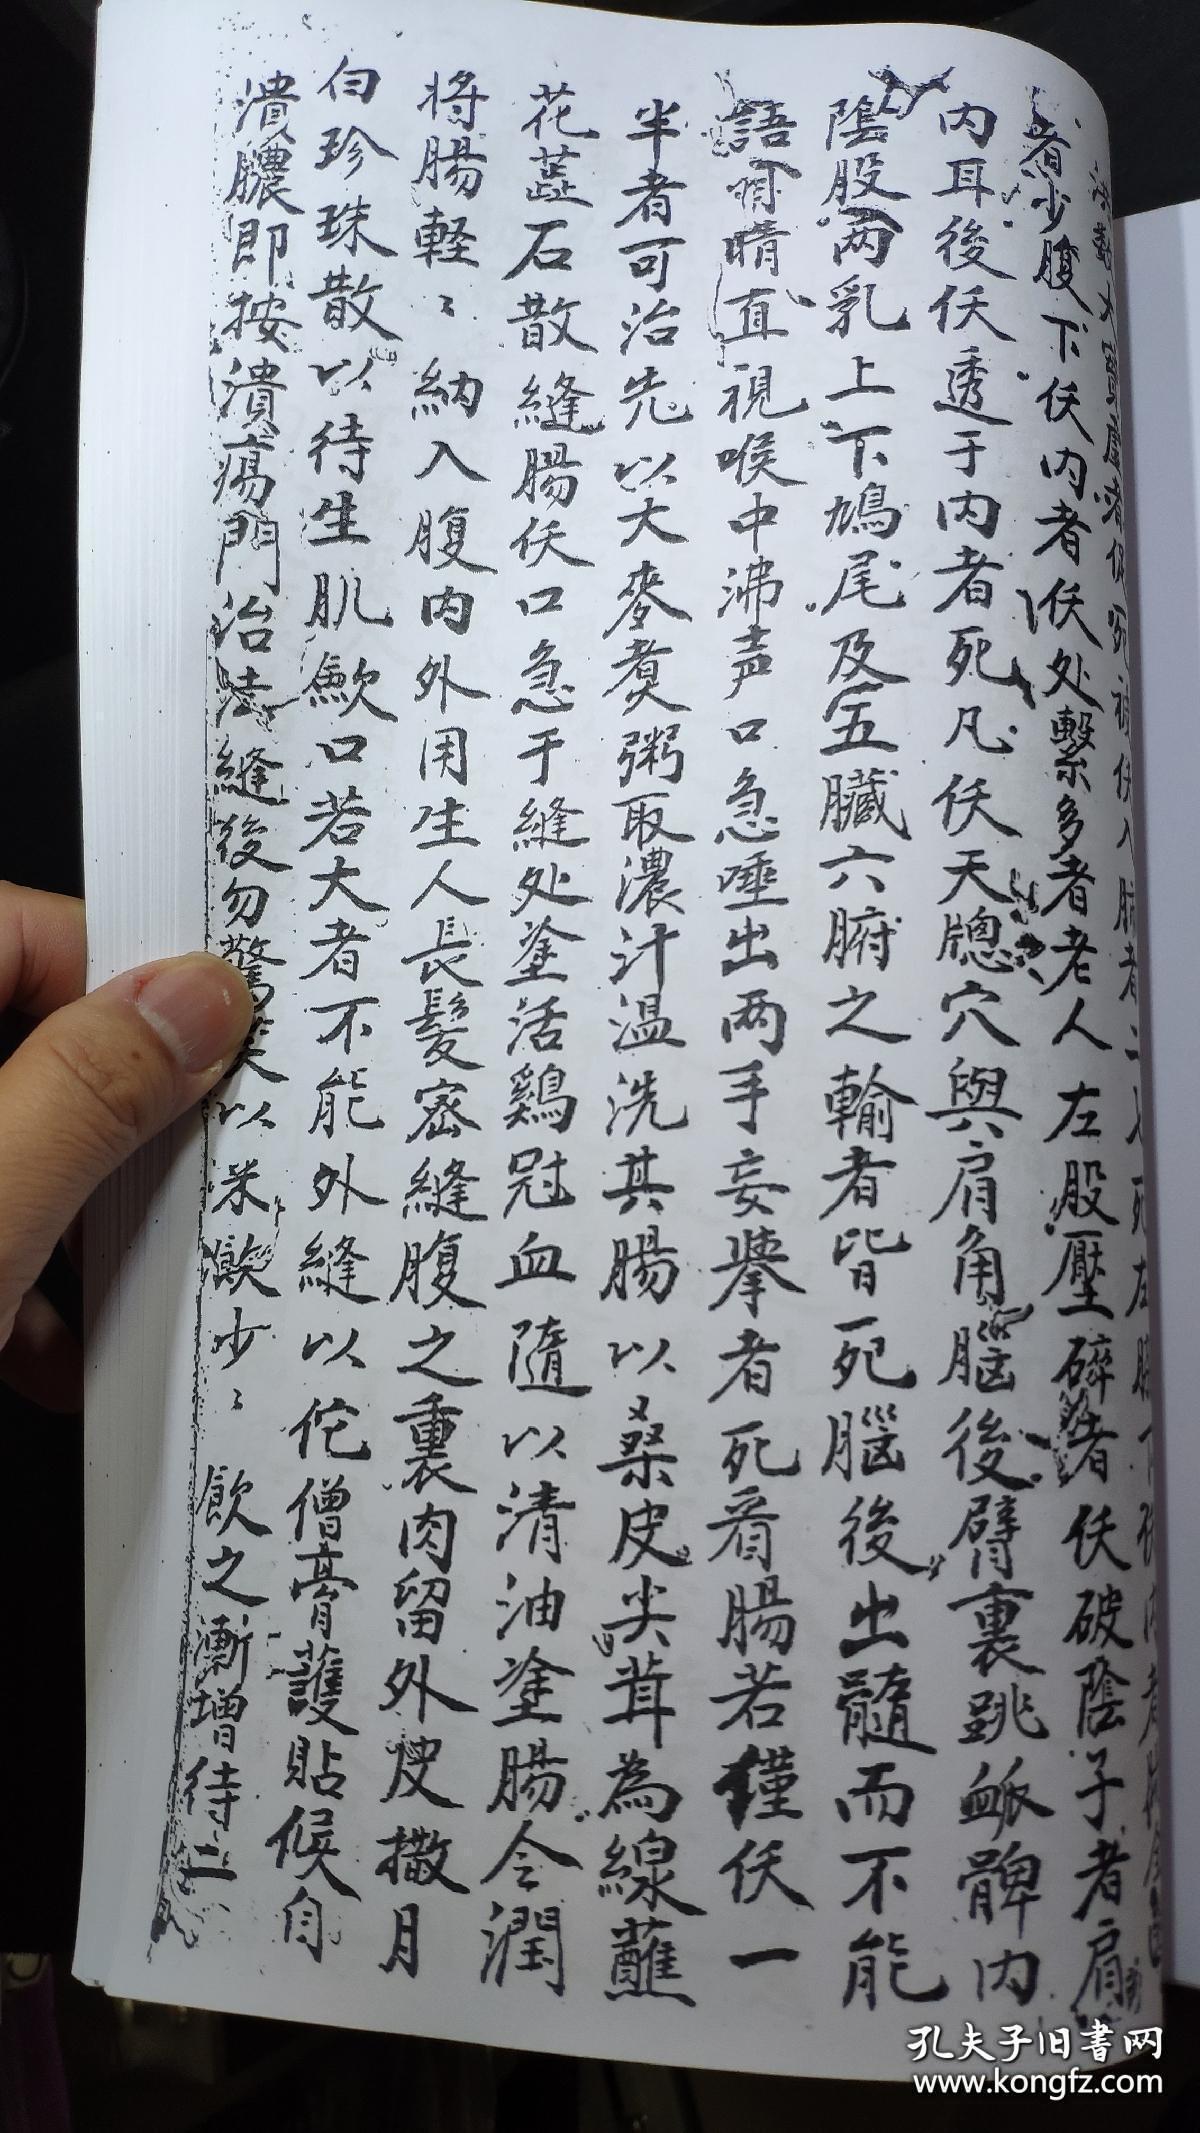 者少腹下伕内者伕处繫多者老人左股壓碎者伕破陰子者肩
内耳後伕透于内者死凡伕天聰穴與肩角腦後臂裏跳䘑髀内
陰股两乳上下鳩尾及五臟六腑之輸者皆死腦後出髓而不能
語睛直視喉中沸声口急唾出两手妄擧者死看腸若僅伕一
半者可治先以大麥煑粥取濃汁温洗其腸以桑皮尖茸為線蘸
花蕋石散縫腸伕口急于縫处塗活鷄冠血隨以清油塗腸令潤
将腸軽〻納入腹内外用生人長髮密縫腹之裏肉留外皮撒月
白珍珠散以待生肌歛口若大者不能外縫以佗僧膏護貼候自
潰膿即按潰瘍門治法縫後勿驚笑以米飲少〻飲之漸增待二
孔夫子旧书网
www.kongfz.com